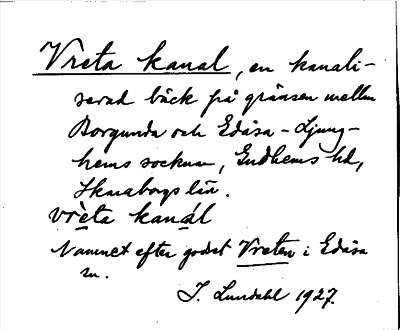 Vreta kanal, en kanali-
serad bäck på gränsen mellan
Borgunda och Edåsa-Ljung-
hems socknar, Gudhems hd,
Skaraborgs län.
vrèta kanál
Namnet efter godset Vreten i Edåsa
sn.
I. Lundahl 1927.